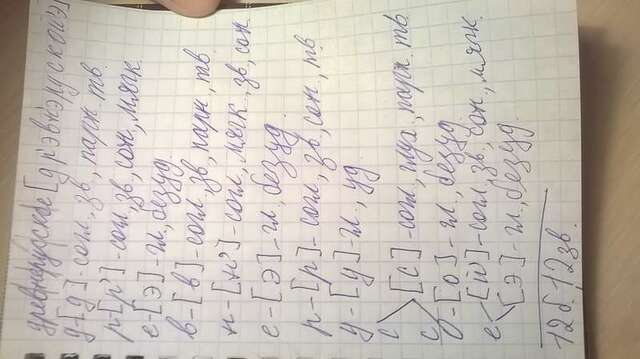 древнерусское [др'эвн'эрускойэ]
д-[д]-согл, зв, парн, тв.
р-[р']-согл, зв, сон, мягк.
е-[э]-гл, безуд.
в-[в]-согл, зв, парн, тв.
н-[н']-согл, мягк, зв, сон
е-[э]-гл, безуд.
р-[р]-согл, зв, сон, тв.
у-[у]-гл, уд.
с
с [с]-согл, глух, парн, тв.
о-[о]-гл, безуд.
е-[й']-согл, зв, сон, мягк.
[э]-гл, безуд.
12б. 12зв.